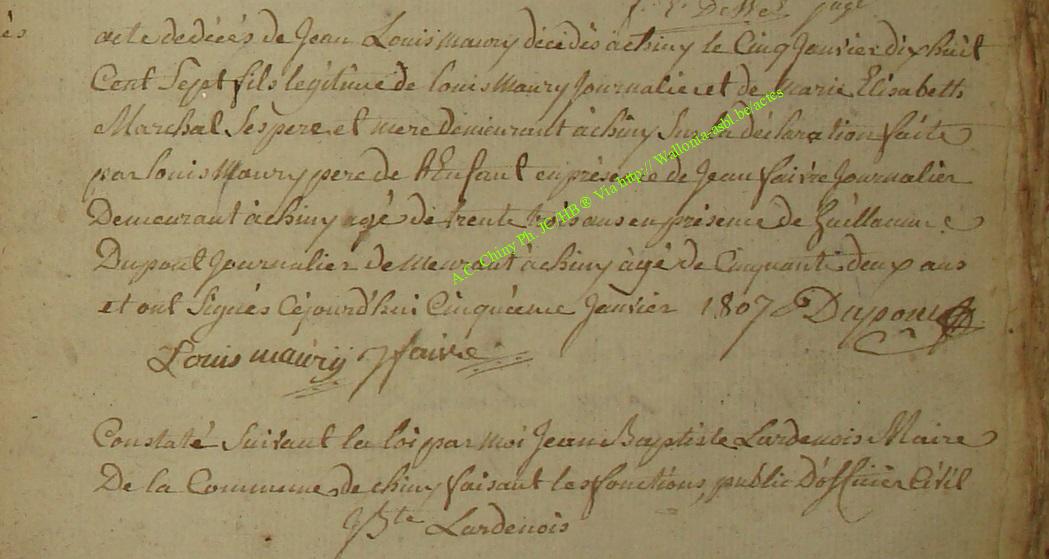 acte dedécés de Jean Louis maury décédés achiny le Cinq Janvier dix huit
Cent Sept fils legitime de louis Maury Journalier et de Marie Elisabeth
Marchal Ses pere et mere demeurant à chiny Sur la déclaration faite
par louis Maury pere de l'Enfant en présence de Jean faivre Journalier
Demeurant à chiny agé de trente trois ans en présence de Guillaume
Dupont Journalier demeurant à chiny âgé de Cinquante deux ans
et ont Signés Cejourd'hui Cinquieme Janvier 1807 Dupont
Louis maury J faivre
Constaté Suivant la loi par moi Jean Baptiste Lardenois Maire
De la Commune de chiny faisant les fonctions public D'officier Civil
JBte Lardenois
A.C. Chiny Ph. JC/HB ® Via http:// Wallonia-asbl.be/actes